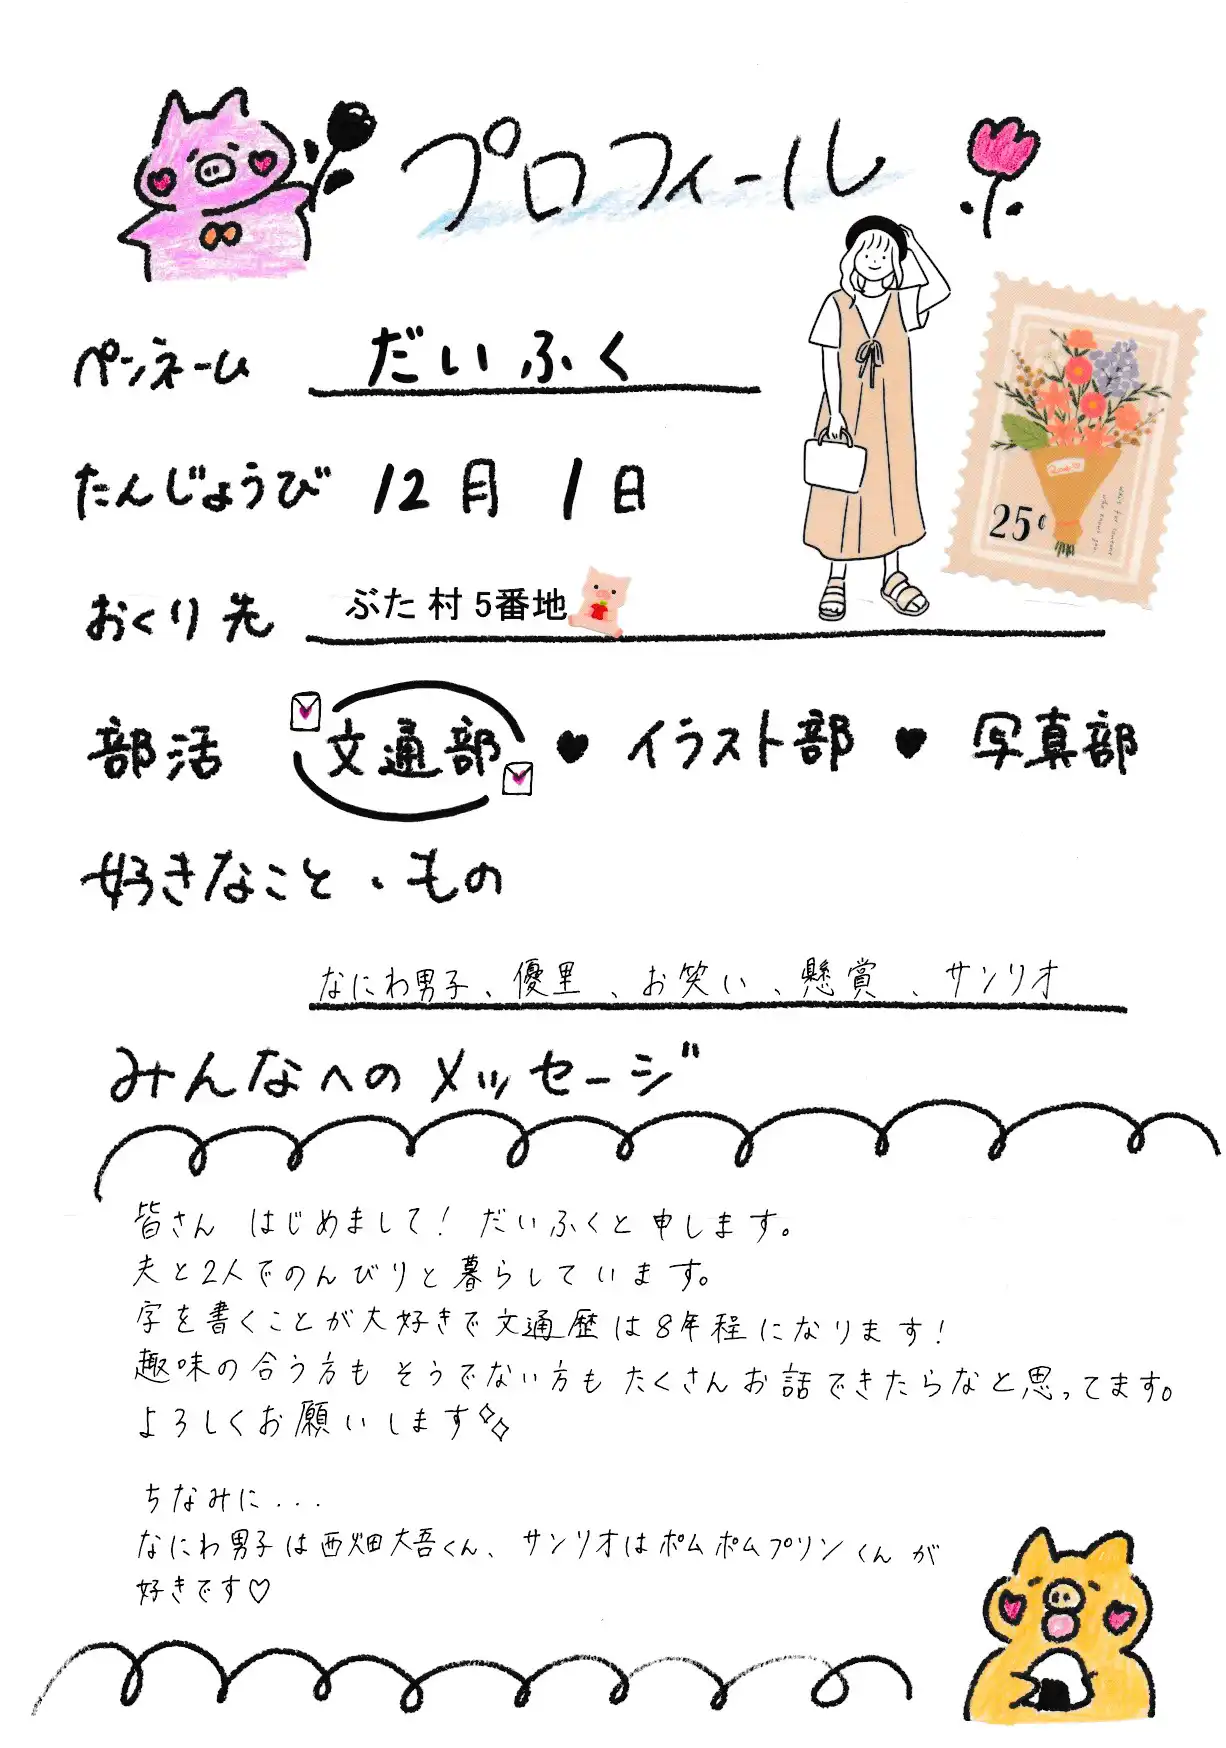 プロフィール
ペンネーム だいふく
たんじょうび 12月 1日
おくり先 ぶた村 5番地
部活 文通部 ♥ イラスト部 ♥ 写真部
好きなこと・もの
なにわ男子、優里、お笑い、懸賞、サンリオ
みんなへのメッセージ
皆さん はじめまして! だいふくと申します。
夫と2人でのんびりと暮らしています。
字を書くことが大好きで文通歴は8年程になります!
趣味の合う方も そうでない方も たくさんお話できたらなと思ってます。
よろしくお願いします
ちなみに...
なにわ男子は西畑大吾くん、サンリオはポムポムプリンくんが
好きです♡
25¢